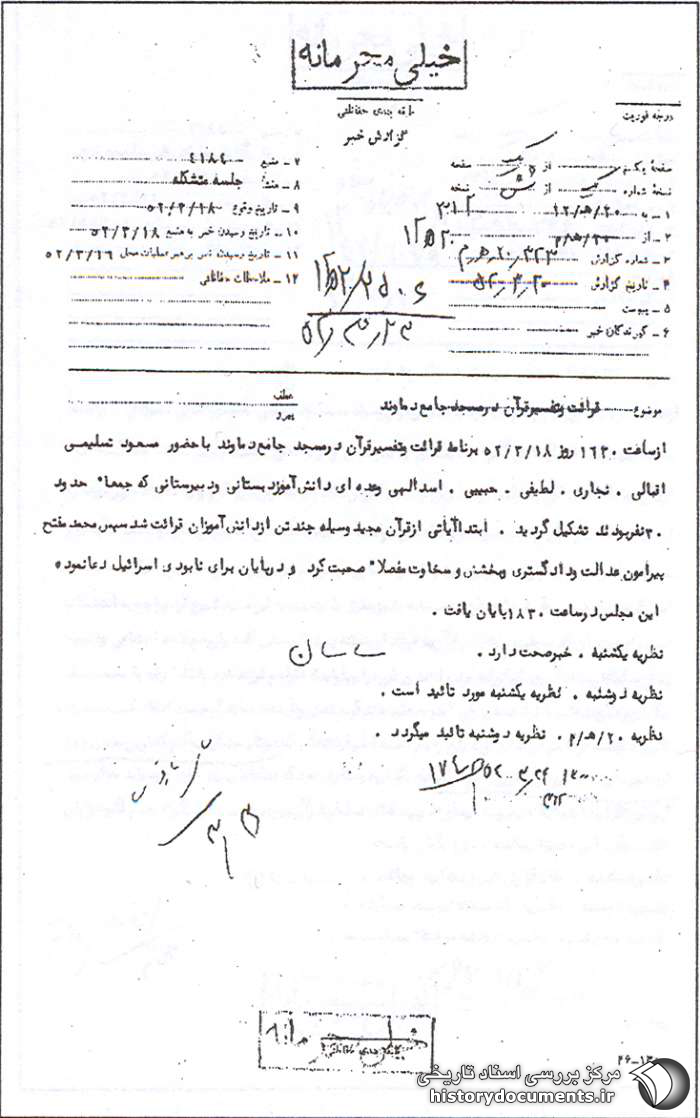 خیلی محرمانه
طبقه بندی حفاظتی
درجه فوریت
گزارش خبر
صفحه یکم از یک صفحه
نسخه شماره یک از شش نسخه
۱ ـ به ۳۱۲
۲ ـ از ۲۰/ه‍/۲
۳ ـ شماره گزارش
۴ ـ تاریخ گزارش ۵۲٫۳٫۲۰
۵ ـ پیوست
۶ ـ گیرندگان خبر
۷ ـ منبع ۴۱۸۴
۸ ـ منشاء جلسه متشکله
۹ ـ تاریخ وقوع ۵۲/۳/۱۸
۱۰ ـ تاریخ رسیدن خبر به منبع ۵۲/۳/۱۸
۱۱ ـ تاریخ رسیدن خبر به رهبر عملیات محل ۵۲/۳/۱۹
۱۲ ـ ملاحظات حفاظتی
۵۲٫۳٫۲۳
موضوع قرائت وتفسیرقرآن درمسجد جامع دماوند
عطف
پیرو
ازساعت ۱۶۳۰ روز ۵۲/۳/۱۸ برنامه قرائت وتفسیرقرآن درمسجد جامع دماوند باحضور مسعود تسلیمی
اقبالی ٠ نجاری ٠ لطیفی ٠ حبیبی ٠ اسدالهی وعده ای دانش آموزدبستانی ودبیرستانی که جمعا" حدود
۳۰ نفربودند تشکیل گردید ٠ ابتداآیاتی ازقرآن مجید وسیله چند تن ازدانش آموزان قرائت شد سپس محمد مفتح
پیرامون عدالت ودادگستری وبخشش و سخاوت مفصلا" صحبت کرد و درپایان برای نابودی اسرائیل دعانمود ه
این مجلس درساعت ۱۸۳۰ پایان یافت ٠
نظریه یکشنبه ٠ خبرصحت دارد ٠
نظریه دوشنبه ٠ نظریه یکشنبه مورد تائید است ٠
نظریه ۲۰/ه‍/۲ ٠ نظریه دوشنبه تائید میگردد ٠
خیلی محرمانه
طبقه بندی حفاظتی
مرکز بررسی اسناد تاریخی
historydocuments.ir